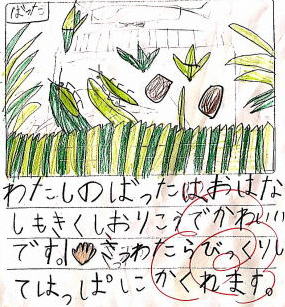 ばった
わたしのばったはおはな
しもきくしおりこうでかわいい
です。さっわたらびっくりし
てはっぱにかくれます。